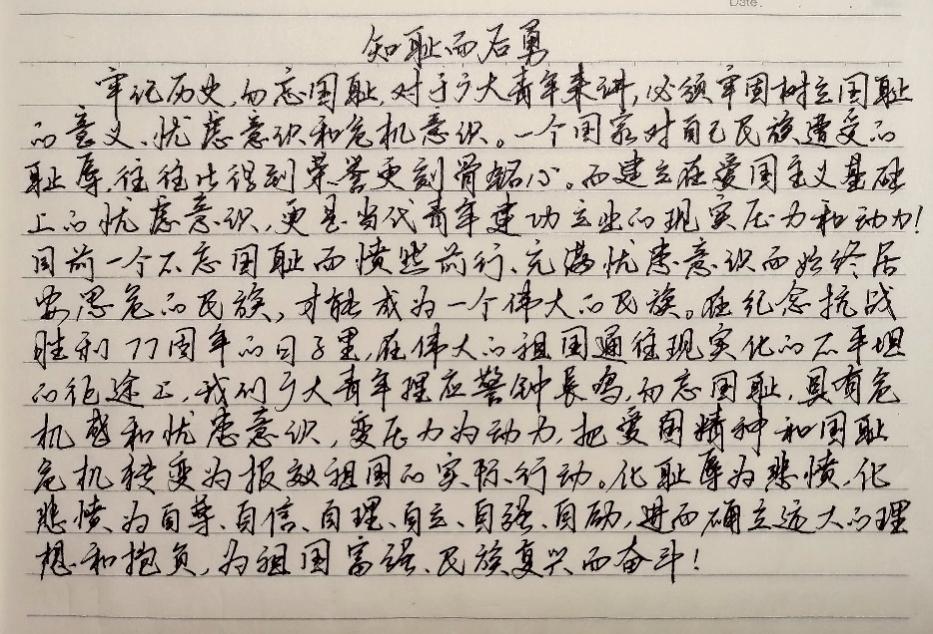 Date.
知耻而后勇
牢记历史,勿忘国耻,对于广大青年来讲,必须牢固树立国耻
的意义、忧虑意识和危机意识。一个国家对自己民族遭受的
耻辱,往往比得到荣誉更刻骨铭心。而建立在爱国主义基础
上的忧虑意识,更是当代青年建功立业的现实压力和动力!
目前一个不忘国耻而愤然前行、充满忧患意识而始终居
安思危的民族,才能成为一个伟大的民族。在纪念抗战
胜利77周年的日子里,在伟大的祖国通往现实化的不平坦
的征途上,我们广大青年理应警钟长鸣,勿忘国耻,具有危
机感和忧患意识,变压力为动力,把爱国精神和国耻
危机转变为报效祖国的实际行动。化耻辱为悲愤,化
悲愤为自尊、自信、自理、自立、自强、自励,进而确立远大的理
想和抱负,为祖国富强、民族复兴而奋斗!